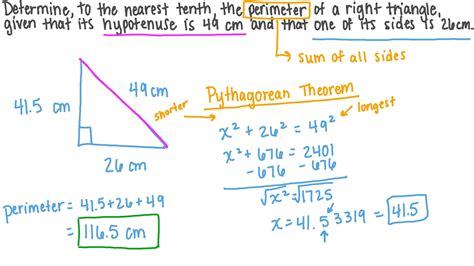 Determine, to the nearest tenth, the perimeter of a right triangle,
given that its hypotenuse is 49 cm and that one of its sides is 26cm.
sum of all sides
41.5 cm
49cm
26 cm
shorter
Pythagorean Theorem
longest
x² + 26² = 49²
x² + 676 = 2401
-676 -676
√x² = √1725
x = 41.53319 = 41.5
perimeter = 41.5+26+49
= 116.5 cm